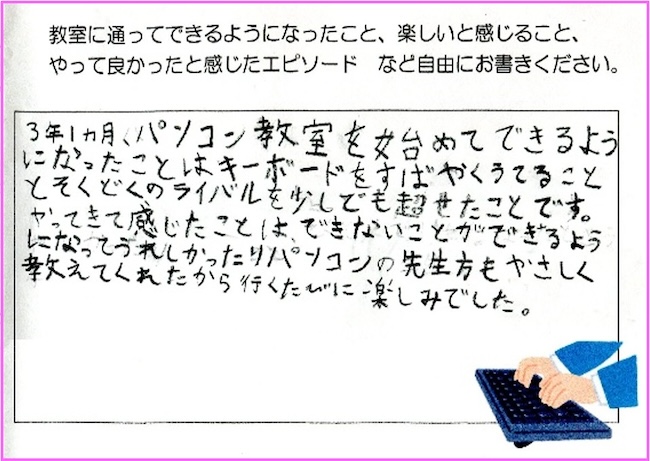 教室に通ってできるようになったこと、楽しいと感じること、
やって良かったと感じたエピソード　など自由にお書きください。
3年1ヵ月、パソコン教室を始めてできるよう
になったことはキーボードをすばやくうてること
とそくどくのライバルを少しでも超せたことです。
やってきて感じたことは、できないことができるよう
になってうれしかったりパソコンの先生方もやさしく
教えてくれたから行くたびに楽しみでした。